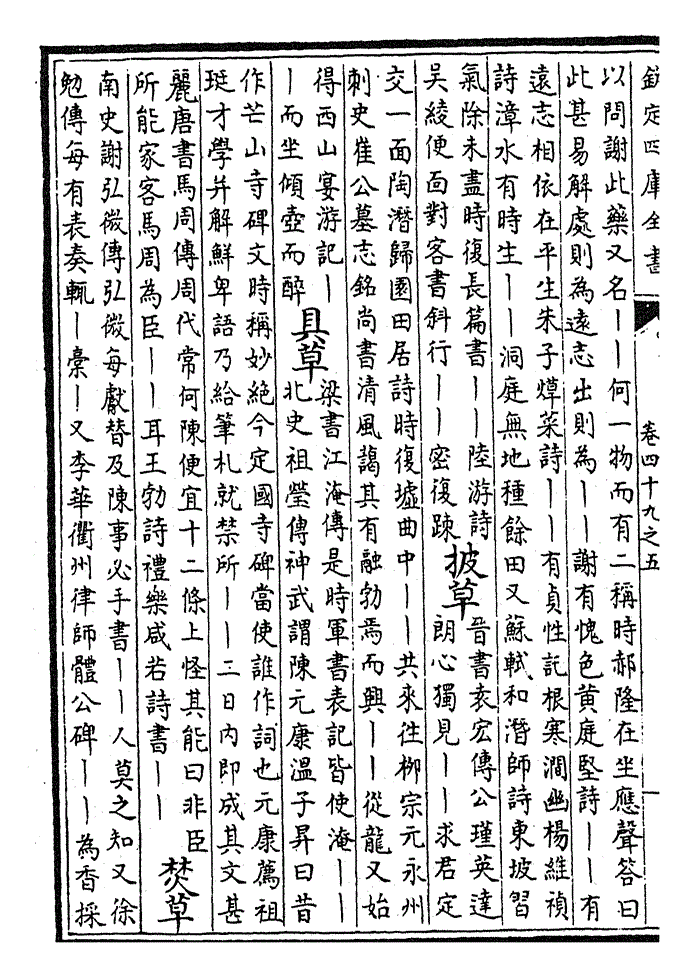 欽定四庫全書
卷四十九之五
以問謝此藥又名｜｜何一物而有二稱時郝隆在坐應聲答曰
此甚易解處則為遠志出則為｜｜謝有愧色黄庭堅詩｜｜有
遠志相依在平生朱子㷟菜詩｜｜有貞性託根寒澗幽楊維禎
詩漳水有時生｜｜洞庭無地種餘田又蘇軾和潛師詩東坡習
氣除未盡時復長篇書｜｜陸游詩
吳綾便面對客書斜行｜｜密復踈
披草
晉書袁宏傳公瑾英達
朗心獨見｜｜求君定
交一面陶潛歸園田居詩時復墟曲中｜｜共來往栁宗元永州
刺史崔公墓志銘尚書清風藹其有融勃焉而興｜｜從龍又始
得西山宴游記｜
｜而坐傾壺而醉
具草
梁書江淹傳是時軍書表記皆使淹｜｜
北史祖瑩傳神武謂陳元康溫子昇曰昔
作芒山寺碑文時稱妙絕今定國寺碑當使誰作詞也元康薦祖
珽才學并解鮮卑語乃給筆札就禁所｜｜二日内即成其文甚
麗唐書馬周傳周代常何陳便宜十二條上怪其能曰非臣
所能家客馬周為臣｜｜耳王勃詩禮樂咸若詩書｜｜
焚草
南史謝弘微傳弘微每獻替及陳事必手書｜｜人莫之知又徐
勉傳每有表奏輒｜藁｜又李華衢州律師體公碑｜｜為香採